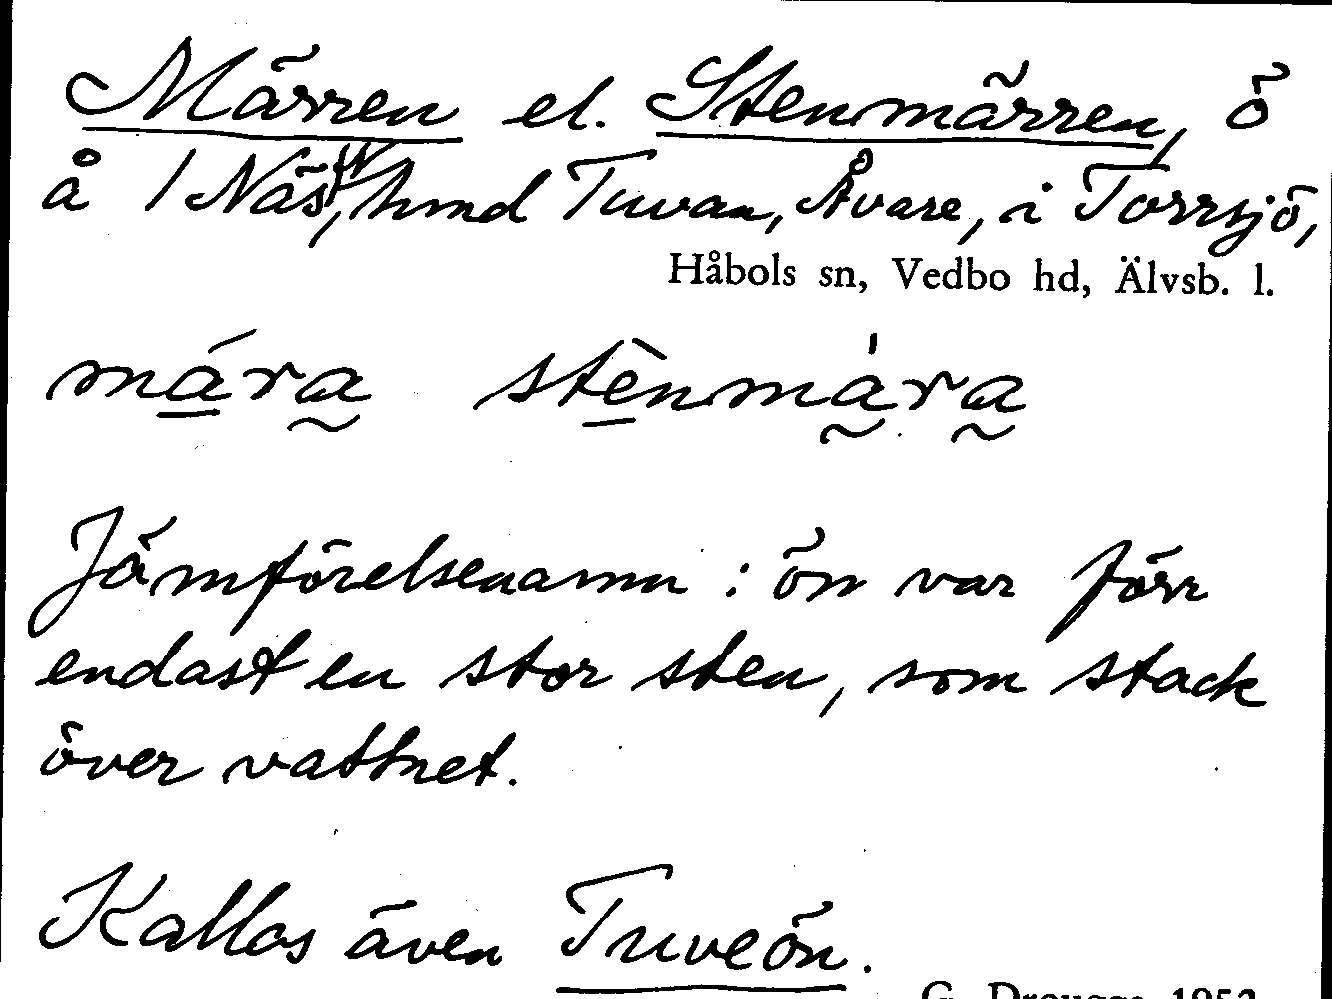 Märren el. Stenmärren, ö
å 1 Näs, hmd Tuvan, Åvare, i Torrsjö,
Håbols sn, Vedbo hd, Älvsb. l.
mára stènmàra
Jämförelsenamn: ön var förr
endast en stor sten, som stack
över vattnet.
Kallas även Tuveön.